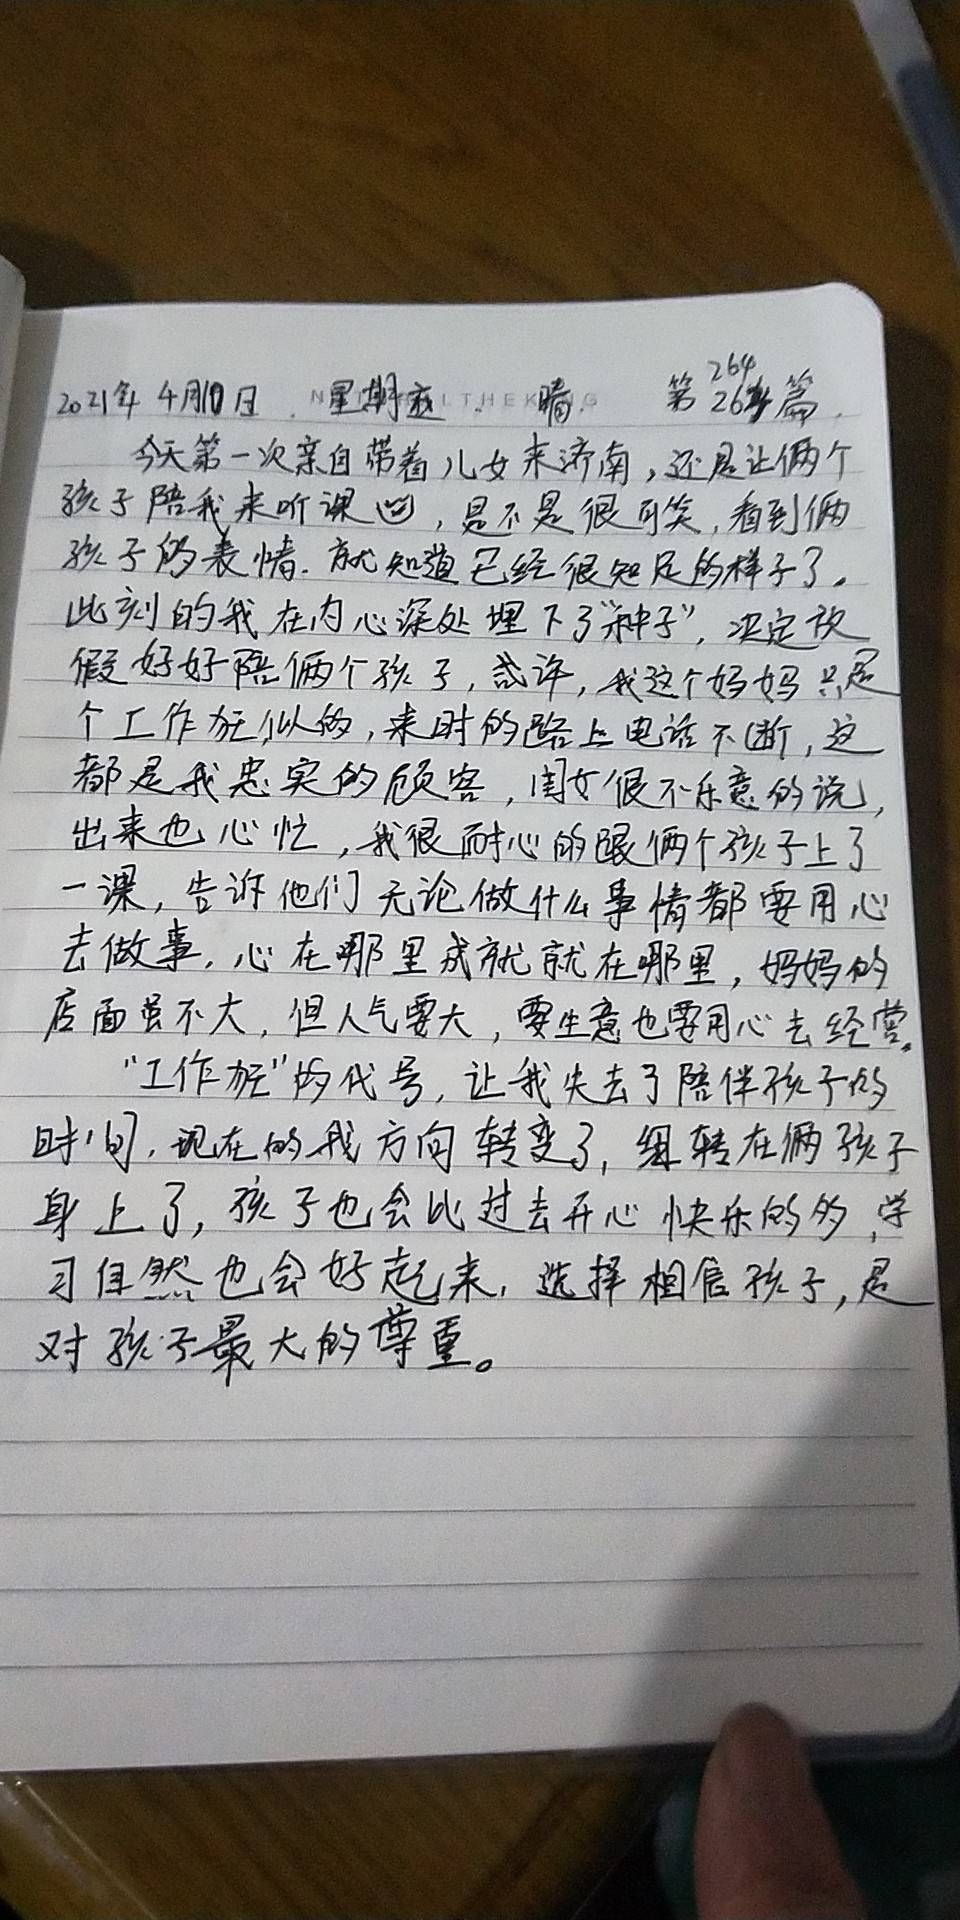 2021年4月10日 星期 晴 第264篇
今天第一次亲自带着儿女来济南,还是让俩个
孩子陪我来听课,是不是很可笑,看到俩
孩子的表情.就知道已经很知足的样子了。
此刻的我在内心深处埋下了“种子”,决定放
假好好陪俩个孩子,或许,我这个妈妈只是
个工作狂似的,来时的路上电话不断,这
都是我忠实的顾客,闺女很不乐意的说,
出来也心忙,我很耐心的跟俩个孩子上了
一课,告诉他们无论做什么事情都要用心
去做事,心在哪里成就就在哪里,妈妈的
店面虽不大,但人气要大,要生意也要用心去经营。
“工作狂”的代号,让我失去了陪伴孩子的
时间,现在的我方向转变了,转在俩孩子
身上了,孩子也会比过去开心快乐的多,学
习自然也会好起来,选择相信孩子,是
对孩子最大的尊重。